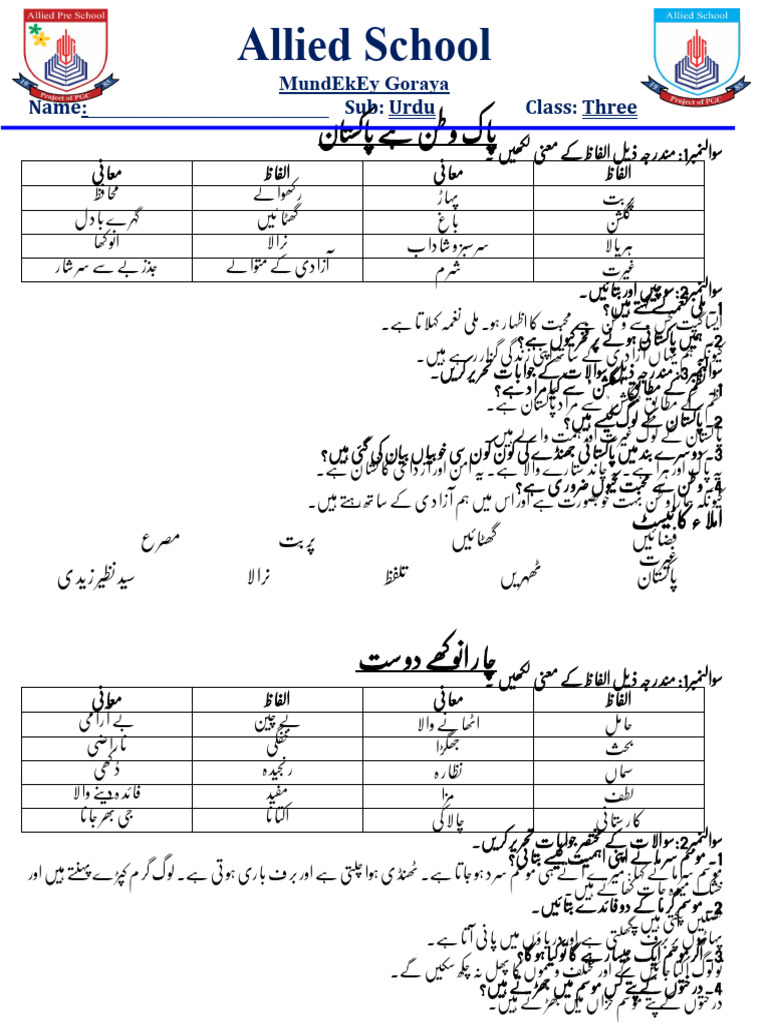 Allied Pre School
Project of PGC
Allied School
Allied School
Project of PGC
MundEkEy Goraya
Name:__________________________ Sub: Urdu Class: Three
پاک وطن ہے پاکستان
سوالنمبر1: مندرجہ ذیل الفاظ کے معنی لکھیں ۔
الفاظ معانی الفاظ معانی
پربت پہاڑ رکھوالے محافظ
گلشن باغ گھٹائیں گہرے بادل
ہریالا سرسبزوشاداب نرالا انوکھا
غیرت شرم آزادی کے متوالے جذبے سے سرشار
سوالنمبر2: سوچیں اور بتائیں۔
1۔ ملی نغمہ کسے کہتے ہیں؟
ایسا گیت جس سے وطن سے محبت کا اظہار ہو۔ ملی نغمہ کہلاتا ہے۔
2۔ ہمیں پاکستانی ہونے پر فخر کیوں ہے؟
کیونکہ ہم یہاں آزادی کے ساتھ اپنی زندگی گزار رہے ہیں۔
سوالنمبر3: مندرجہ ذیل سوالات کے جوابات تحریر کریں۔
1۔ نظم کے مطابق "گلشن" سے کیا مراد ہے؟
نظم کے مطابق گلشن سے مراد پاکستان ہے۔
2۔ پاکستان کے لوگ کیسے ہیں؟
پاکستان کے لوگ غیرت اور ہمت والے ہیں۔
3۔ دوسرے بند میں پاکستانی جھنڈے کی کون کون سی خوبیاں بیان کی گئی ہیں؟
یہ پاک اور ہرا ہے۔ چاند ستارے والا ہے۔ یہ امن اور آزادی کا نشان ہے۔
4۔ وطن سے محبت کیوں ضروری ہے؟
کیونکہ ہمارا وطن بہت خوبصورت ہے اور اس میں ہم آزادی کے ساتھ رہتے ہیں۔
املاء کا ٹیسٹ
فضائیں گھٹائیں پربت مصرع
غیرت
پاکستان ٹھہریں تلفظ نرالا سید نظیر زیدی
چار انوکھے دوست
سوالنمبر1: مندرجہ ذیل الفاظ کے معنی لکھیں ۔
الفاظ معانی الفاظ معانی
حامل اٹھانے والا بے چین بے آرامی
بحث جھگڑا خفگی ناراضی
سماں نظارہ رنجیدہ دُکھی
لطف مزا مفید فائدہ دینے والا
کارستانی چالاکی اکتانا جی بھر جانا
سوالنمبر2: سوالات کے مختصر جوابات تحریر کریں۔
1۔ موسم سرما نے اپنی اہمیت کیسے بتائی؟
موسم سرما نے کہا: میرے آتے ہی موسم سرد ہو جاتا ہے۔ ٹھنڈی ہوا چلتی ہے اور برف باری ہوتی ہے۔ لوگ گرم کپڑے پہنتے ہیں اور
خشک میوہ جات کھاتے ہیں۔
2۔ موسم گرما کے دو فائدے بتائیں۔
فصلیں پکتی ہیں
پہاڑوں پر برف پگھلتی ہے اور دریاؤں میں پانی آتا ہے۔
3۔ اگر موسم ایک جیسا رہے گا تو کیا ہو گا؟
تو لوگ اکتا جائیں گے اور مختلف موسموں کا پھل نہ چکھ سکیں گے۔
4۔ درختوں کے پتے کس موسم میں جھڑتے ہیں؟
درختوں کے پتے موسم خزاں میں جھڑتے ہیں۔